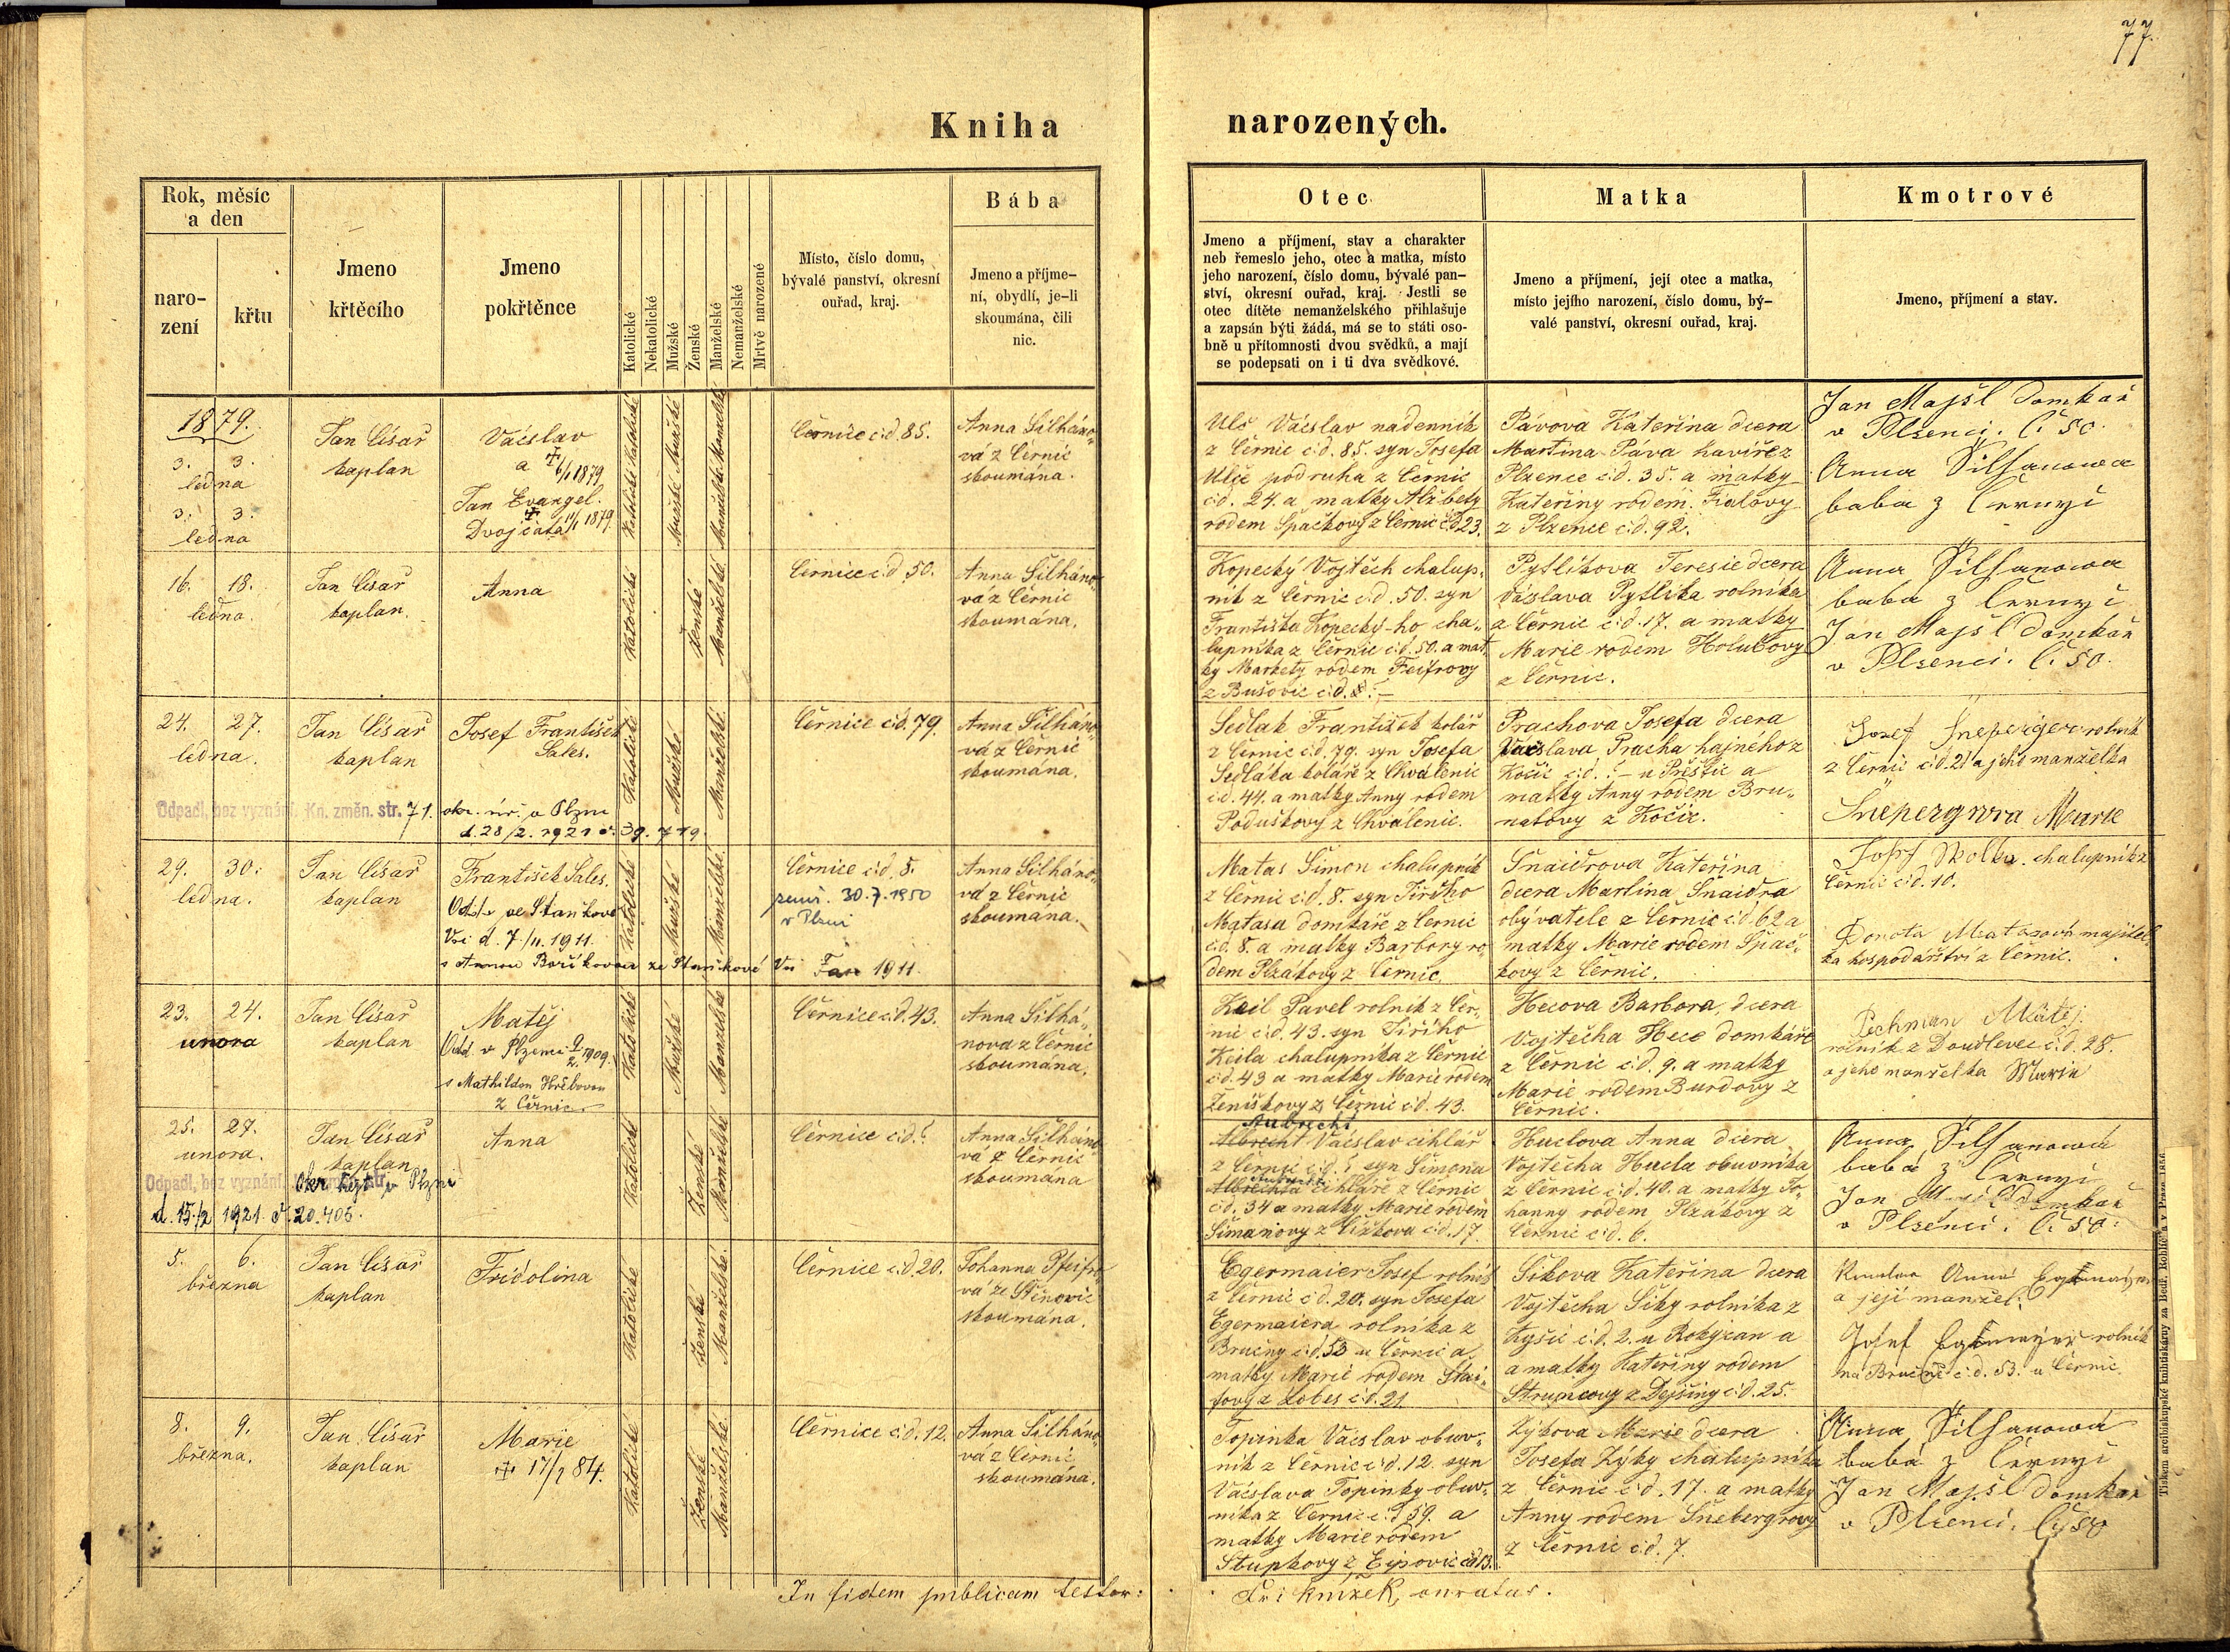 77.
Kniha narozených.
Rok, měsíc
a den
naro-
zení
křtu
Jmeno
křtěcího
Jmeno
pokřtěnce
Katolické
Nekatolické
Mužské
Ženské
Manželské
Nemanželské
Mrtvě narozené
Místo, číslo domu,
bývalé panství, okresní
ouřad, kraj.
Bába
Jmeno a příjme-
ní, obydlí, je-li
skoumána, čili
nic.
Otec
Jmeno a příjmení, stav a charakter
neb řemeslo jeho, otec a matka, místo
jeho narození, číslo domu, bývalé pan-
ství, okresní ouřad, kraj. Jestli se
otec dítěte nemanželského přihlašuje
a zapsán býti žádá, má se to státi oso-
bně u přítomnosti dvou svědků, a mají
se podepsati on i ti dva svědkové.
Matka
Jmeno a příjmení, její otec a matka,
místo jejího narození, číslo domu, bý-
valé panství, okresní ouřad, kraj.
Kmotrové
Jmeno, příjmení a stav.
1879.
3. 3.
ledna
3. 3.
ledna
Jan Císař
kaplan
Václav
a † 6/1 1879
Jan Evangel.
Dvojčata † 11/1 1879.
Katolické Katolické
Mužské Mužské
Manželské Manželské
Černice č:d. 85.
Anna Šilháno-
vá z Černic
skoumána.
Ulč Václav nadenník
z Černic č:d. 85. syn Josefa
Ulče podruha z Černic
č:d. 24. a matky Alžběty
rodem Špačkovy z Černic č:d. 23.
Pávova Kateřina dcera
Martina Páva havíře z
Plzence č:d. 35. a matky
Kateřiny rodem Fialovy
z Plzence č:d. 92.
Jan Majšl domkař
v Plzenci. č. 50.
Anna Šilhanowa
baba z Černyci
16. 18.
ledna.
Jan Císař
kaplan.
Anna
Katolické
Ženské
Manželské
Černice č:d. 50.
Anna Šilháno-
vá z Černic
skoumána.
Kopecký Vojtěch chalup-
ník z Černic č:d. 50. syn
Františka Kopecký-ho cha-
lupníka z Černic č:d. 50. a mat-
ky Markety rodem Feifrovy
z Bušovic č:d. 8. –
Pytlíkova Teresie dcera
Václava Pytlíka rolníka
z Černic č:d. 17. a matky
Marie rodem Holubovy
z Černic.
Anna Šilhanowa
baba z Černyci
Jan Majšl domkař
v Plzenci. č. 50.
24. 27.
ledna.
Jan Císař
kaplan
Josef František
Sales.
Katolické
Mužské
Manželské.
Černice č:d. 79.
Anna Šilháno-
vá z Černic
skoumána.
Odpadl, bez vyznání. Kn. změn. str. 71. okr. úř. v Plzni
d. 28/2. 1921 č. 39.719.
Sedlak František kolář
z Černic č:d. 79. syn Josefa
Sedláka koláře z Chválenic
č:d. 44. a matky Anny rodem
Poduškovy z Chválenic.
Prachova Josefa dcera
Václava Pracha hajného z
Kočic č:d. ? – u Přeštic a
matky Anny rodem Bru-
natovy z Kočic.
Josef Šneperger rolník
z Černic č:d. 21 a jeho manželka
Šnepergrova Marie
29. 30.
ledna.
Jan Císař
kaplan
František Sales.
Odd. ve Staňkově
Vsi d. 7./11. 1911.
s Annou Boříkovou ze Staňkové Vsi
Katolické
Mužské
Manželské.
Černice č:d. 8.
zemř. 30.7.1950
v Plzni
1911.
Anna Šilháno-
vá z Černic
skoumána.
Matas Šimon chalupník
z Černic č:d. 8. syn Jiřího
Matasa domkáře z Černic
č:d. 8. a matky Barbory ro-
dem Plzákovy z Černic.
Šnaidrova Kateřina
dcera Martina Šnaidra
obývatele z Černic č:d. 62 a
matky Marie rodem Špač-
kovy z Černic.
Josef Skolka chalupník z
Černic č:d. 10.
Dorota Matasová majitel-
ka hospodařství z Černic.
23. 24.
unora
Jan Císař
kaplan
Matěj
Odd. v Plzenci 9/2. 1909.
s Mathildou Hříbovou
z Černic.
Katolické
Mužské
Manželské
Černice č:d. 43.
Anna Šilhá-
nova z Černic
skoumána.
Keil Pavel rolník z Čer-
nic č:d. 43. syn Jiřího
Keila chalupníka z Černic
č:d. 43 a matky Marie rodem
Ženíškovy z Černic č:d. 43.
Hecova Barbora, dcera
Vojtěcha Hece domkáře
z Černic č:d. 9. a matky
Marie rodem Burdovy z
Černic.
Pechman Matěj
rolník z Doudlevec č:d. 28.
a jeho manželka Marie
25. 27.
unora.
Jan Císař
kaplan
Anna
Katolické
Ženské
Manželské
Černice č:d. ?
Anna Šilháno-
vá z Černic
skoumána
Odpadl, bez vyznání. Okr. hejt. v Plzni
d. 15./2 1921. č. 20.405.
Aubrecht
Albrecht Václav cihlář
z Černic č:d. ? syn Šimona
Albrechta cihláře z Černic
č:d. 34 a matky Marie rodem
Šimanovy z Čížkova č:d. 17.
Huclova Anna dcera
Vojtěcha Hucla obuvníka
z Černic č:d. 40. a matky Jo-
hanny rodem Plzákovy z
Černic č:d. 6.
Anna Šilhanowá
baba z Černyci
Jan Majšl domkař
v Plzenci. č. 50.
5. 6.
března
Jan Císař
kaplan
Fridolina
Katolické
Ženské
Manželské.
Černice č:d. 20.
Johanna Pfeifro-
vá ze Štěnovic
skoumána.
Egermaier Josef rolník
z Černic č:d. 20. syn Josefa
Egermaiera rolníka z
Bručny č:d. 53 u Černic a
matky Marie rodem Štai-
fovy z Lobes č:d. 21.
Šikova Kateřina dcera
Vojtěcha Šiky rolníka z
Kyšic č:d. 2. u Rokyzan a
a matky Kateřiny rodem
Struncovy z Dejšiny č:d. 25.
Anna Egrmajer
a její manžel.
Josef Egrmajer rolník
na Bručně č:d. 53. u Černic
8. 9.
března.
Jan Císař
kaplan
Marie
† 17/7 84.
Katolické
Ženské
Manželské.
Černice č:d. 12.
Anna Šilháno-
vá z Černic
skoumána.
Topinka Václav obuv-
ník z Černic č:d. 12. syn
Václava Topinky obuv-
níka z Černic č:d. 59. a
matky Marie rodem
Stupkovy z Ejpovic č:d. 13.
Zýkova Marie dcera
Josefa Zýky chalupníka
z Černic č:d. 17. a matky
Anny rodem Šnebergrovy
z Černic č:d. 7.
Anna Šilhanowá
baba z Černyci
Jan Majšl domkař
v Plzenci. č. 50
In fidem publicam testor:
Fr: Knížek, curatus.
Tiskem arcibiskupské knihtiskárny za Bedř. Rohlíčka v Praze 1856.